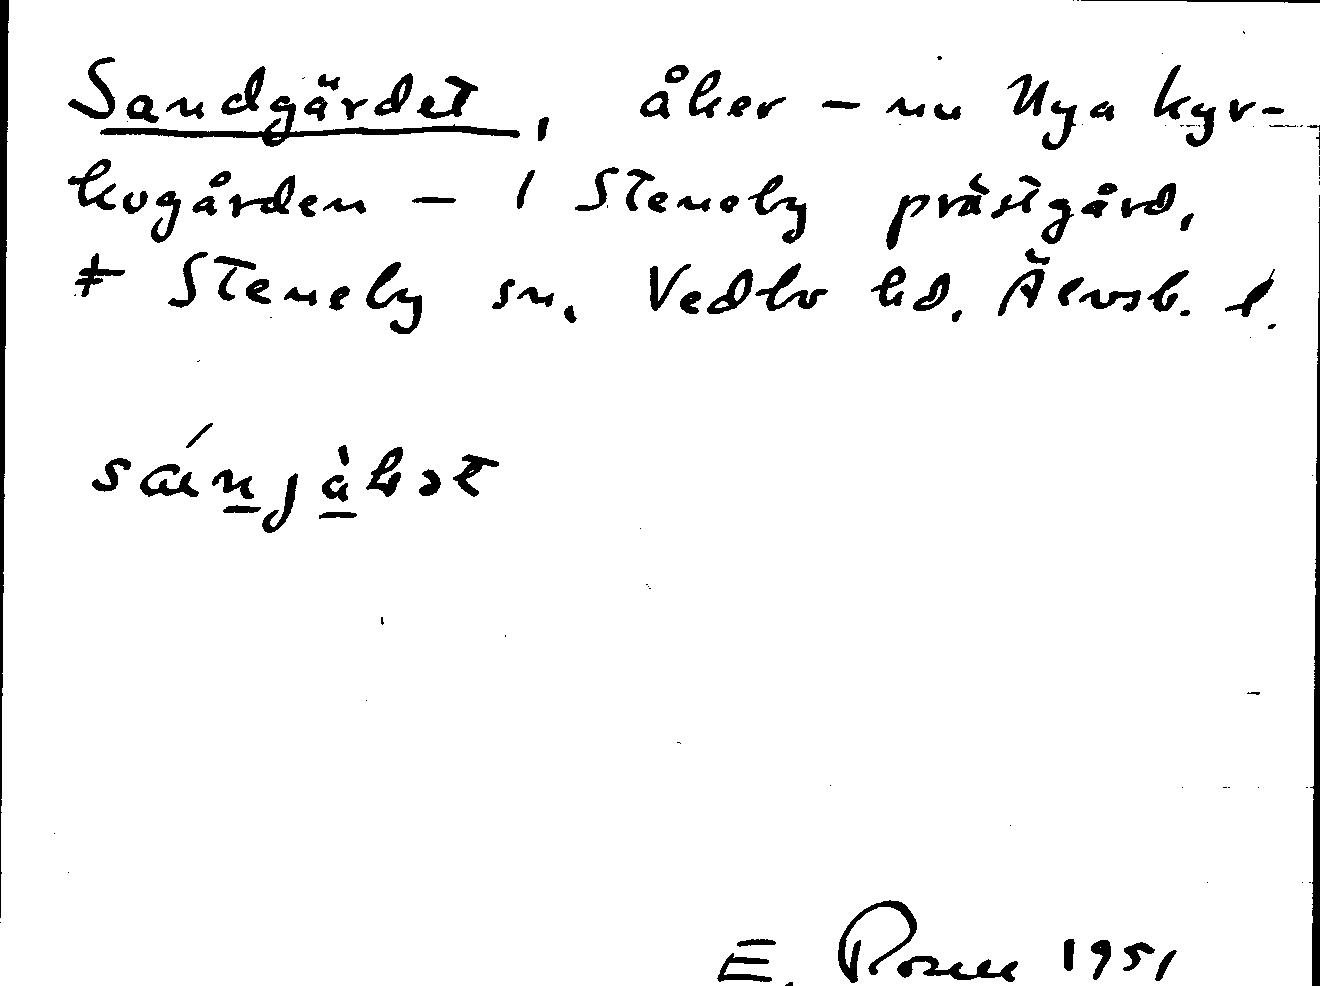 Sandgärdet, åker – nu Nya kyr-
kogården – / Steneby prästgård,
‡ Steneby sn. Vedbo hd. Älvsb. l.
E. Rosell 1951